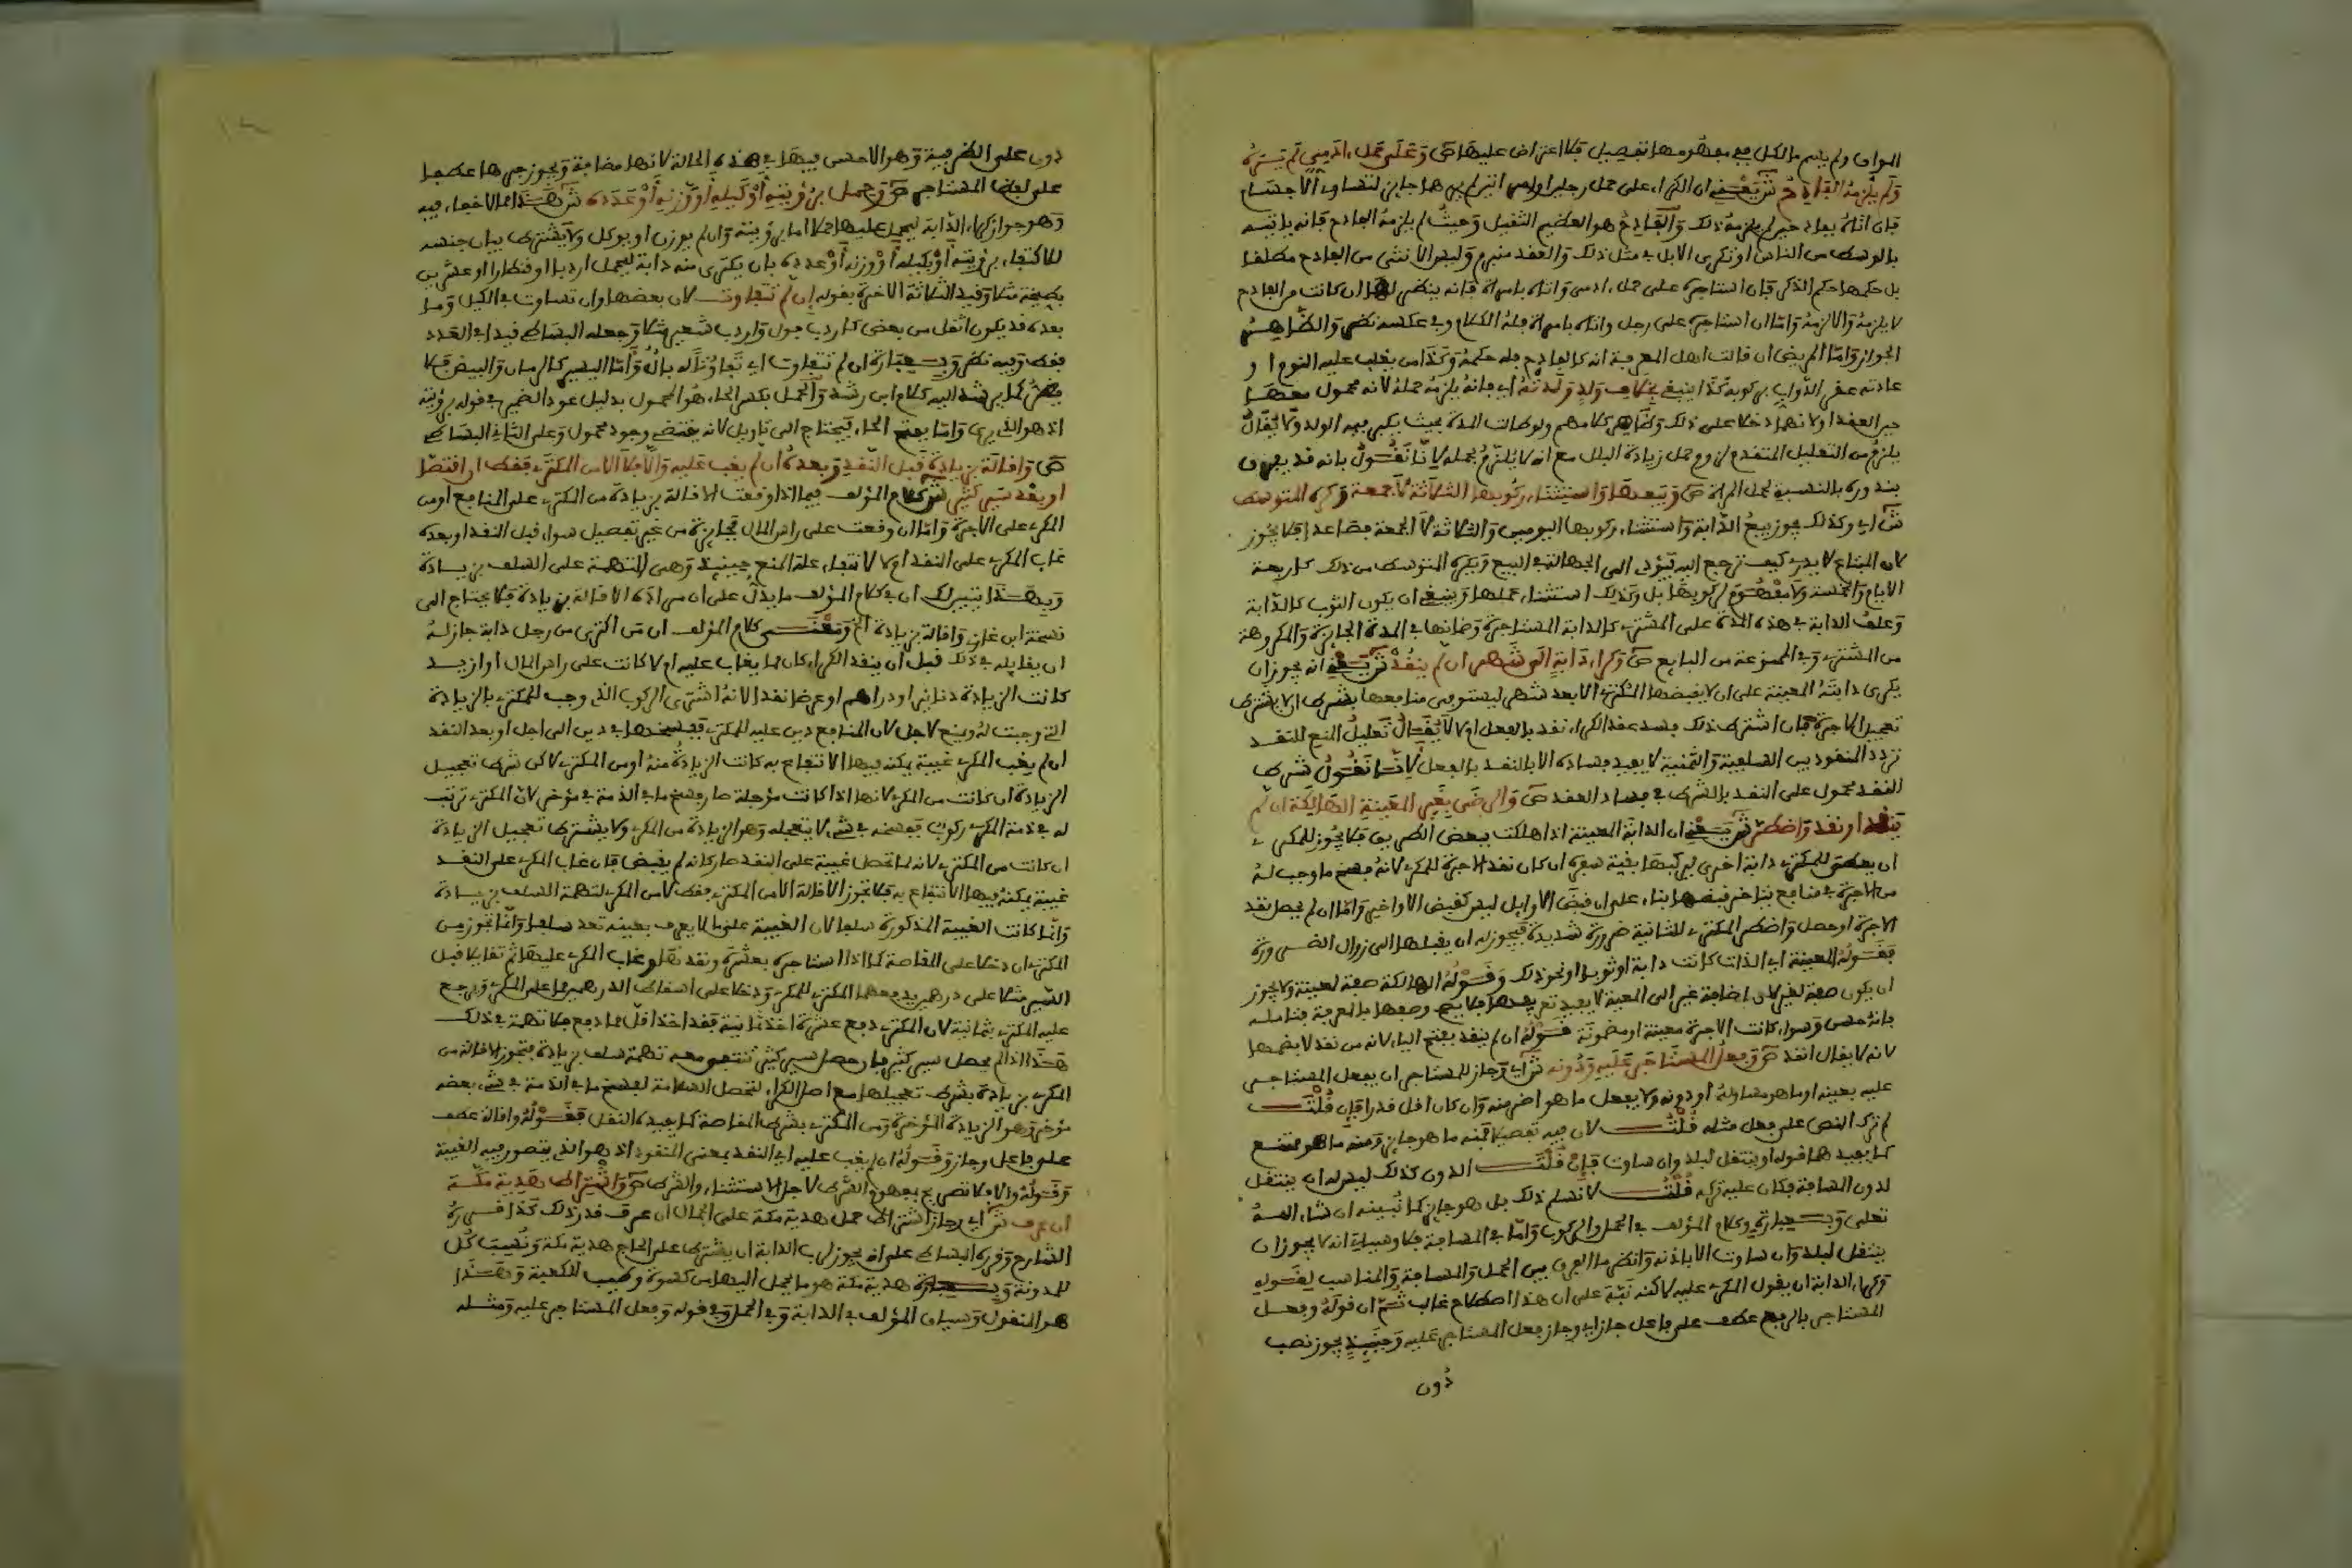 الوان ولم يتم بالكل ففي مفهومها تفصيل فلا اعتراض عليها ص وعلى حمل ءادمي لم يره
ولم يلزمه الفادح ش يعني ان الكراء على حمل رجل او امراة لم يرهما جايز لتساوي الاجسام
فان اتاه بفادح لم يلزمه ذلك والفادح هو العظيم الثقيل وحيث لم يلزمه الفادح فانه ياتيه
بالوسط من الناس او تكرى الابل في مثل ذلك والعقد منبرم وليس الانثى من الفادح مطلقا
بل حكمها حكم الذكر فان استاجره على حمل ءادمي واتاه بامراة فانه ينظر لها ان كانت من الفادح
لا يلزمه والا لزمه واما ان استاجره على رجل واتاه بامراة فله الكلام وفي عكسه نظر والظاهر
الجواز واما المريض ان قالت اهل المعرفة انه كالفادح فله حكمه وكذا من يغلب عليه النوم او
عادته عقر الدواب بركوبه كذا ينبغي بخلاف ولد ولدته اي فانه يلزمه حمله لانه محمول معها
حين العقد اولا نهما دخلا على ذلك وظاهر كلامهم ولو طالت المدة بحيث يكبر فيه الولد ولا يقال
يلزم من التعليل المتقدم لزوم حمل زيادة البلل مع انه لا يلزم بحمله لانا نقول بانه قد يعرف
بندوره بالنسبة لحمل المراة ص وبيعها واستثناء ركوبها الثلاثة لا جمعة وكره المتوسط
ش اي وكذلك يجوز بيع الدابة واستثناء ركوبها اليومين والثلاثة لا الجمعة فصاعدا فلا يجوز
لان المبتاع لا يدري كيف ترجع اليه فيؤدي الى الجهالة في البيع ويكره المتوسط من ذلك كاربعة
الايام والخمسة ولا مفهوم لركوبها بل وكذلك استثناء حملها وينبغي ان يكون الثوب كالدابة
وعلف الدابة في هذه المدة على المشتري كالدابة المستاجرة وضمانها في المدة الجايزة والمكروهة
من المشتري وفي الممنوعة من البايع ص وكراء دابة الى شهر ان لم ينقد ش يعني انه يجوز ان
يكري دابته المعينة على ان لا يقبضها المكتري الا بعد شهر ليستوفي منافعها بشرط ان لا يشترط
تعجيل الاجرة فان اشترط ذلك فسد عقد الكراء نقد بالفعل او لا لا يقال تعليل المنع للنقد
تردد المنقود بين السلفية والثمنية لا يفيد فساده الا بالنقد بالفعل لانا نقول شرط
النقد محمول على النقد بالشرط في فساد العقد ص والرضى بغير المعينة الهالكة ان لم
ينقد او نقد واضطر ش يعني ان الدابة المعينة اذا هلكت ببعض الطريق فلا يجوز للمكري
ان يعطي للمكتري دابة اخرى ليركبها بقية سفره ان كان نقد الاجرة للمكري لانه فسخ ما وجب له
من الاجرة في منافع يتاخر قبضها بناء على ان قبض الاوايل ليس كقبض الاواخر واما ان لم يحصل نقد
الاجرة او حصل واضطر المكتري للثانية ضرورة شديدة فيجوز له ان يقبلها الى زوال الضرورة
فقوله المعينة اي الذات كانت دابة او ثوبا او نحو ذلك وقوله الهالكة صفة لمعينة ولا يجوز
ان يكون صفة لغير لان اضافة غير الى المعينة لا يفيد تعريفها فلا يصح وصفها بالمعرفة فتامله
بانه حسن وسواء كانت الاجرة معينة او مضمونة قوله ان لم ينقد بفتح الياء لانه من نقد لا بضمها
لانه لا يقال انقد ص وفعل المستاجر عليه ودونه ش اي وجاز للمستاجر ان يفعل المستاجر
عليه بعينه او ما هو مساو له او دونه ولا يفعل ما هو اضر منه وان كان اقل قدرا فان قلت
لم ترك النص على فعل مثله قلت لان فيه تفصيلا فمنه ما هو جايز ومنه ما هو ممتنع
كما يفيد هنا قوله او ينتقل لبلد وان ساوت فان قلت الدون كذلك ليس له ان ينتقل
لدون المسافة فكان عليه تركه قلت لا نسلم ذلك بل هو جايز كما نبينه ان شاء الله
تعلى وبعبارة وكلام المؤلف في الحمل والركوب واما في المسافة فلا وسياتي انه لا يجوز ان
ينتقل لبلد وان ساوت الا باذنه وانظر ما الفرق بين الحمل والمسافة والمناسب لقوله
وكراء الدابة ان يقول المكري عليه لاكنه نبه على ان هذا اصطلاح غالب ثم ان قوله وفعل
المستاجر بالرفع عطف على فاعل جاز اي وجاز فعل المستاجر عليه وحينئذ يجوز نصب
دون
دون على الظرفية وهو الاحسن فيها في هذه الحالة لانها مضافة ويجوز جرها عطفا
على لفظ المستاجر ص وحمل برؤيته او كيله او وزنه او عدده ش هذا مما لا خفاء فيه
وهو جواز كراء الدابة ليحمل عليها حملا اما برؤيته وان لم يوزن او يوكل ولا يشترط بيان جنسه
للاكتفاء برؤيته او بكيله او وزنه او عدده بان يكتري منه دابة ليحمل اردبا او قنطارا او عشرين
بطيخة مثلا وقيد الثلاثة الاخيرة بقوله ان لم تتفاوت لان بعضها وان تساوت في الكيل وما
بعده قد يكون اثقل من بعض كاردب فول واردب شعير مثلا وجعله البساطي قيدا في العدد
فقط وفيه نظر وبعبارة ان لم تتفاوت اي تفاوتا له بال واما اليسير كالرمان والبيض فلا
يضر كما يرشد اليه كلام ابن رشد والحمل بكسر الحاء هو المحمول بدليل عود الضمير في قوله برؤيته
اذ هو الذي يرى واما بفتح الحاء فيحتاج الى تاويل لانه يقتضي وجود محمول وعلى الثاني البساطي
ص واقالة بزيادة قبل النقد وبعده ان لم يغب عليه والا فلا الا من المكتري فقط ان اقتصا
او بعد سير كثير ش كلام المؤلف فيما اذا وقعت الاقالة بزيادة من المكتري على المنافع او من
المكري على الاجرة واما ان وقعت على راس المال فجايزة من غير تفصيل سواء قبل النقد او بعده
غاب المكري على النقد او لا لانتفاء علة المنع حينئذ وهي التهمة على السلف بزيادة
وبهذا يتبين لك ان في كلام المؤلف ما يدل على ان مراده الاقالة بزيادة فلا يحتاج الى
نسخة ابن غازي واقالة بزيادة الخ ومعنى كلام المؤلف ان من اكترى من رجل دابة جاز له
ان يقايله في ذلك قبل ان ينقد الكراء كان مما يغاب عليه او لا كانت على راس المال او ازيد
كانت الزيادة دنانير او دراهم او عرضا نقدا لانه اشترى الركوب الذي وجب للمكتري بالزيادة
التي وجبت له ويمنع لاجل لان المنافع دين عليه للمكتري ففسخها في دين الى اجل او بعد النقد
ان لم يغب المكري غيبة يمكنه فيها الانتفاع به كانت الزيادة منه او من المكتري لاكن شرط تعجيل
الزيادة ان كانت من المكري لانها اذا كانت مؤجلة صار فسخ ما في الذمة في مؤخر لان المكتري ترتب
له في ذمة المكري ركوب فيفسخه في شيء لا يتعجله وهو الزيادة من المكري ولا يشترط تعجيل الزيادة
ان كانت من المكتري لانه لما تحصل غيبة على النقد صار كانه لم يقبض فان غاب المكري على النقد
غيبة يمكنه فيها الانتفاع به فلا تجوز الاقالة الا من المكتري فقط لا من المكري لتهمة السلف بزيادة
وانما كانت الغيبة المذكورة سلفا لان الغيبة على ما لا يعرف بعينه تعد سلفا وانما تجوز من
المكتري ان دخلا على المقاصة كما اذا استاجره بعشرة ونقدها وغاب المكري عليها ثم تقايلا قبل
السير مثلا على درهمين يدفعهما المكتري للمكري ودخلا على اسقاط الدرهمين مما على المكري ويرجع
عليه المكتري بثمانية لان المكتري دفع عشرة اخذ ثمانية فقد اخذ اقل مما دفع فلا تهمة في ذلك
هذا اذا لم يحصل سير كثير فان حصل سير كثير تنتفي معه تهمة سلف بزيادة فتجوز الاقالة من
المكري بزيادة بشرط تعجيلها مع اصل الكراء لتحصل السلامة لفسخ ما في الذمة في شيء بعضه
مؤخر وهو الزيادة المؤخرة ومن المكتري بشرط المقاصة كما يفيده النقل فقوله واقالة عطف
على فاعل وجاز وقوله ان لم يغب عليه اي النقد بمعنى المنقود اذ هو الذي يتصور فيه الغيبة
وقوله والا فلا تصريح بمفهوم الشرط لاجل الاستثناء والشرط ص واشتراط هدية مكة
ان عرف ش اي وجاز اشتراط حمل هدية مكة على الجمال ان عرف قدر ذلك كذا قرره
الشارح وقرره البساطي على انه يجوز لرب الدابة ان يشترط على الحاج هدية مكة ونسبت كل
للمدونة وبعبارة هدية مكة هو ما يحمل اليها من كسوة وطيب للكعبة وهذا
هو المنقول وسياق المؤلف في الدابة وفي الحمل وفي قوله وفعل المستاجر عليه ومثله